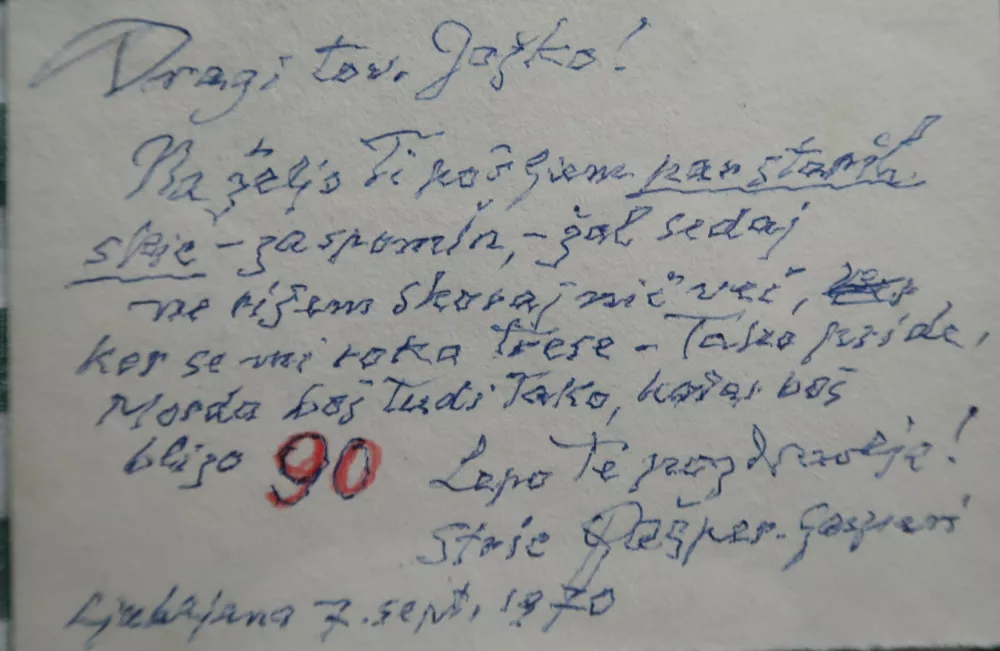 Dragi tov. Joško!
Na željo Ti pošljem par starih
skic - za spomin, - žal sedaj
ne rišem skoraj nič več,
ker se mi roka trese - Tako pride,
Morda boš tudi tako, kadar boš
blizo 90 Lepo Te pozdravlja!
stric Gašper. Gasperi
Ljubljana 7. sept. 1970